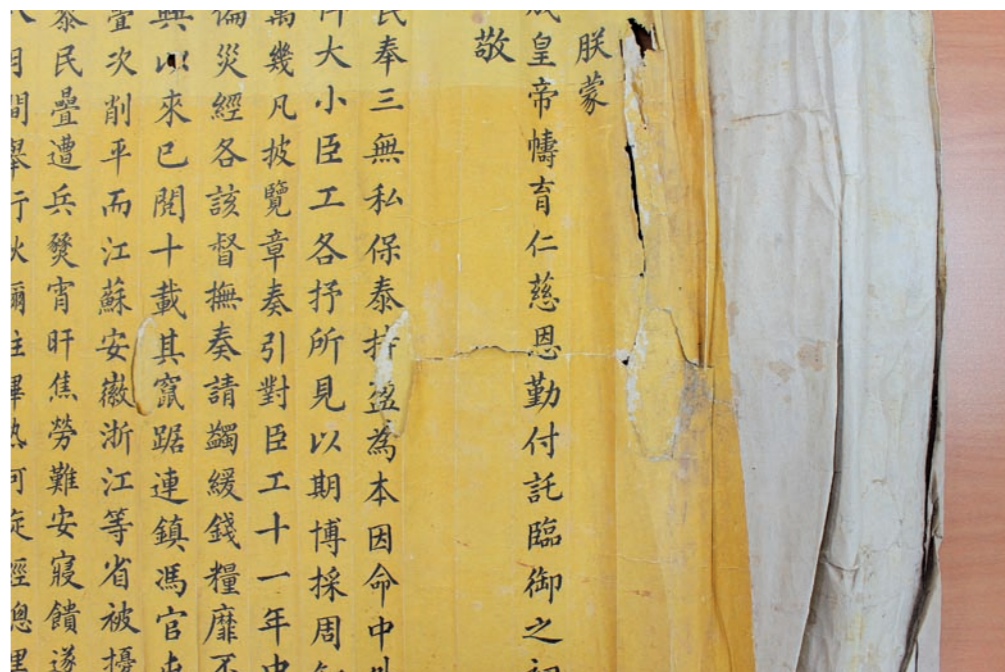 朕蒙
成皇帝幬育仁慈恩勤付託臨御之初
敬
民奉三無私保泰持盈為本因命中外
大小臣工各抒所見以期博採周知
萬幾凡披覽章奏引對臣工十一年中
偏災經各該督撫奏請蠲緩錢糧靡不
興以來已閱十載其竄踞連鎮馮官屯
疊次削平而江蘇安徽浙江等省被擾
黎民疊遭兵燹宵旰焦勞難安寢饋遂
月間舉行秋獮駐蹕熱河旋經總理